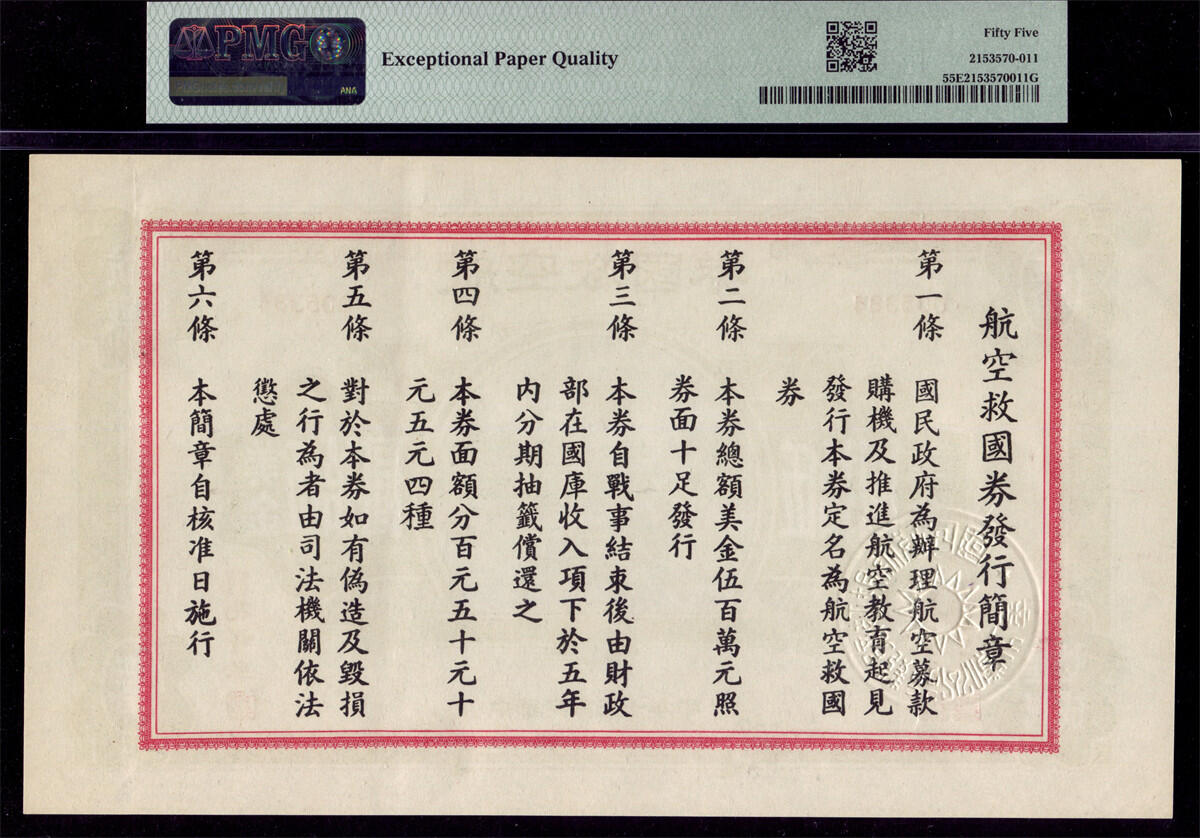 PMG
ANA
Exceptional Paper Quality
Fifty Five
2153570-011
55E2153570011G
航空救國券發行簡章
第一條 國民政府為辦理航空募款
購機及推進航空教育起見
發行本券定名為航空救國
券
第二條 本券總額美金伍百萬元照
券面十足發行
第三條 本券自戰事結束後由財政
部在國庫收入項下於五年
內分期抽籤償還之
第四條 本券面額分百元五十元十
元五元四種
第五條 對於本券如有偽造及毀損
之行為者由司法機關依法
懲處
第六條 本簡章自核准日施行